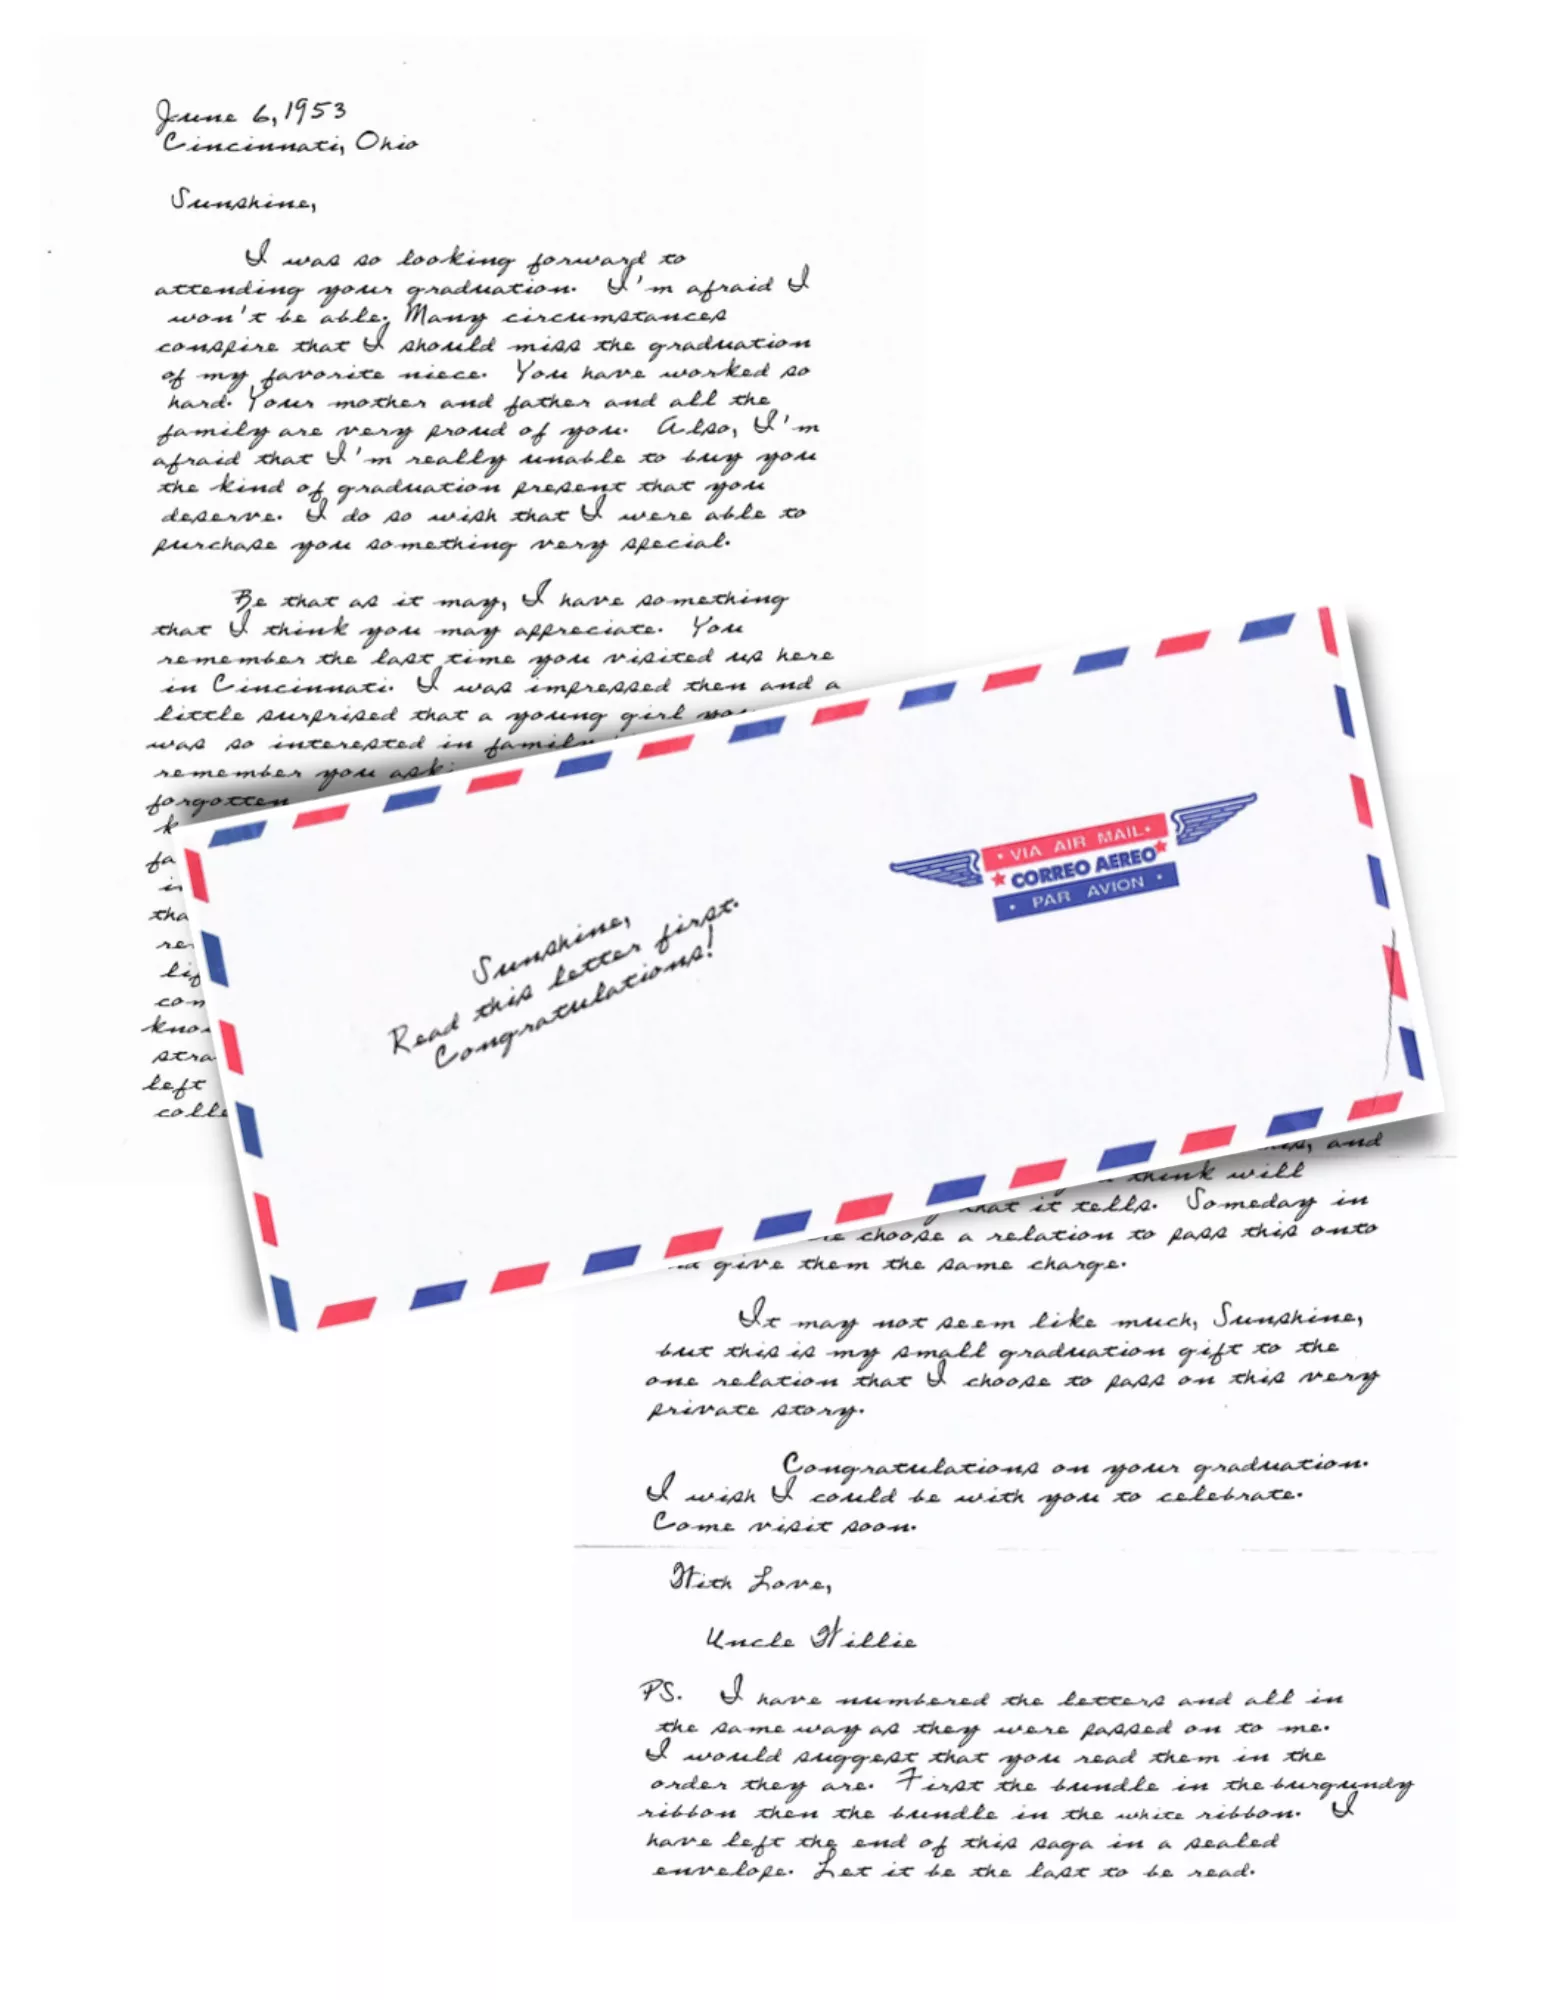 June 6, 1953
Cincinnati, Ohio
Sunshine,
I was so looking forward to
attending your graduation. I'm afraid I
won't be able. Many circumstances
conspire that I should miss the graduation
of my favorite niece. You have worked so
hard. Your mother and father and all the
family are very proud of you. Also, I'm
afraid that I'm really unable to buy you
the kind of graduation present that you
deserve. I do so wish that I were able to
purchase you something very special.
Be that as it may, I have something
that I think you may appreciate. You
remember the last time you visited us here
in Cincinnati. I was impressed then and a
little surprised that a young girl
was so interested in family
remember you
forgotten
left
Sunshine,
Read this letter first.
Congratulations!
• VIA AIR MAIL •
CORREO AEREO
• PAR AVION •
and
think will
that it tells. Someday in
choose a relation to pass this onto
give them the same charge.
It may not seem like much, Sunshine,
but this is my small graduation gift to the
one relation that I choose to pass on this very
private story.
Congratulations on your graduation.
I wish I could be with you to celebrate.
Come visit soon.
With Love,
Uncle Willie
PS. I have numbered the letters and all in
the same way as they were passed on to me.
I would suggest that you read them in the
order they are. First the bundle in the burgundy
ribbon then the bundle in the white ribbon. I
have left the end of this saga in a sealed
envelope. Let it be the last to be read.